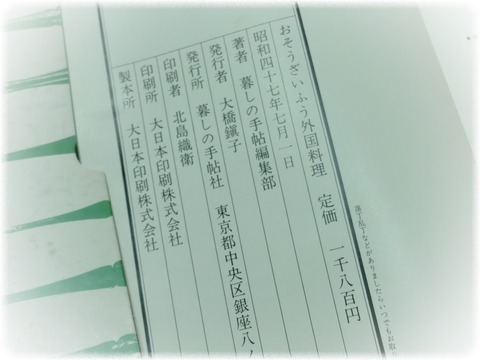 落丁乱丁などがありましたらいつでもお取
おそうざいふう外国料理 定価 一千八百円
昭和四十七年七月一日
著者 暮しの手帖編集部
発行者 大橋鎭子
発行所 暮しの手帖社 東京都中央区銀座八ノ
印刷者 北島織衛
印刷所 大日本印刷株式会社
製本所 大日本印刷株式会社